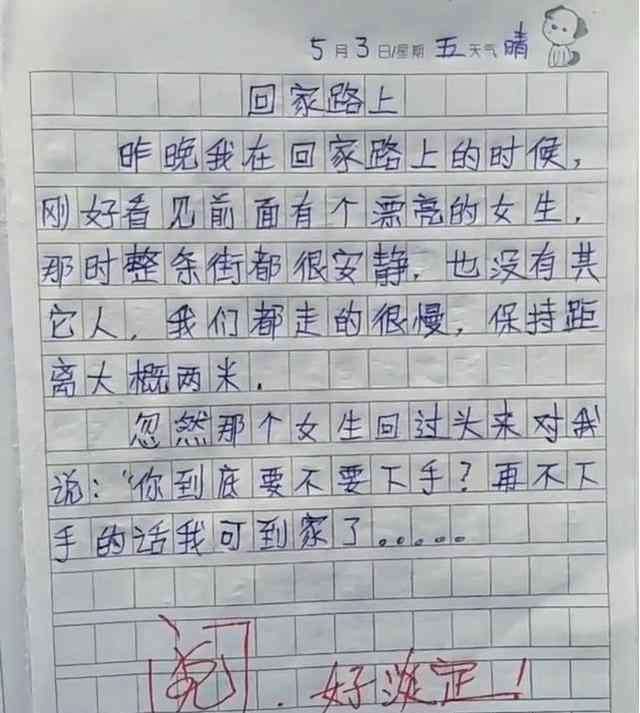 5月3日/星期 五 天气 晴
回家路上
昨晚我在回家路上的时候,
刚好看见前面有个漂亮的女生,
那时整条街都很安静,也没有其
它人,我们都走的很慢,保持距
离大概两米.
忽然那个女生回过头来对我
说:"你到底要不要下手?再不下
手的话我可到家了.....
阅.好淡定!